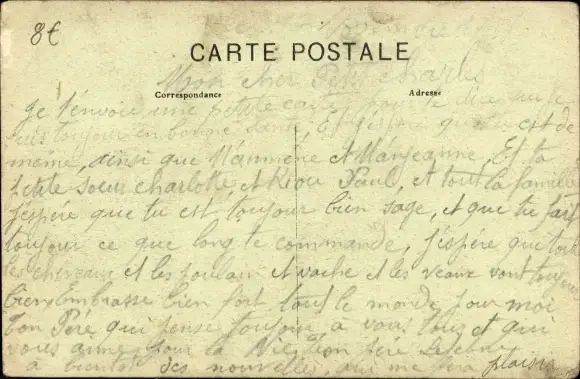 8€
CARTE POSTALE
Correspondance Adresse
Mon cher Petit Charles
Je t'envoie une petite carte pour te dire que je
suis toujour en bonne santé, Et j'éspère que toi est de
même, ainsi que et Marjeanne, Et ta
petite soeur charlotte, et Paul, et tout la famille
j'espére que tu est toujour bien sage, et que tu fait
toujour ce que long te commande, j'éspére que tout
les chevaux et les poulain et vache et les veaux vont toujour
bien Embrasse bien fort tous le monde pour moi
Ton Pére qui pense toujour a vous tous et qui
vous aime pour la Vie, ton pére
a bientot des nouvelles, qui me fera plaisir